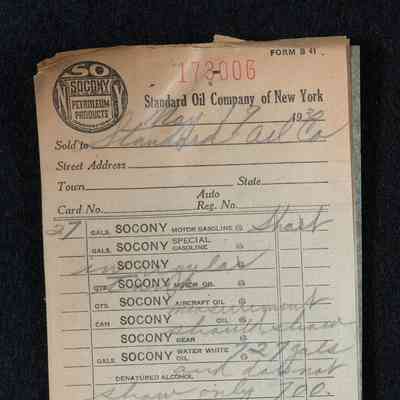 FORM B 41
173006
SO
SOCONY
N Y
PETROLEUM
PRODUCTS
Standard Oil Company of New York
May 17 1930
Sold to Standard Oil Co
Street Address
Town State
Card No. Auto Reg. No.
27 GALS. SOCONY MOTOR GASOLINE @ Short
GALS. SOCONY SPECIAL GASOLINE @
SOCONY
QTS. SOCONY MOTOR OIL @
QTS. SOCONY AIRCRAFT OIL @ measurement
CAN SOCONY OIL @ should show
SOCONY GEAR
GALS. SOCONY WATER WHITE OIL @ 727 gals
DENATURED ALCOHOL and does not
show only 700.